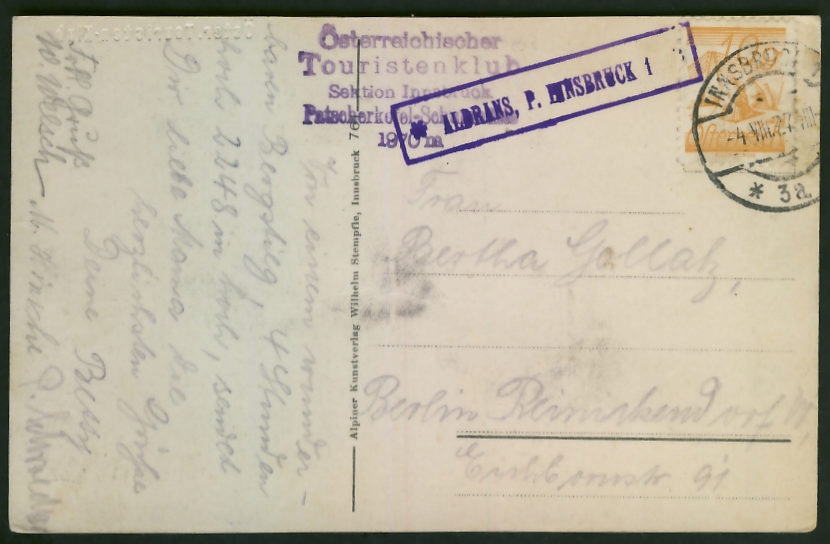 Österreichischer
Touristenklub
Sektion Innsbruck
Patscherkofel-Schutzhaus
1970 m
* ALDRANS, P. INNSBRUCK 1
10
INNSBRUCK
-4.VIII.27
* 3a
Von einem wunder-
baren Bergstieg, 4 Stunden
hoch 2248 m hoch, sendet
Dir liebe Mama die
herzlichsten Grüße
Deine Betty
Frau
Bertha Gollatz,
Berlin Reinickendorf W,
Eichbornstr. 91
Alpiner Kunstverlag Wilhelm Stempfle, Innsbruck 76